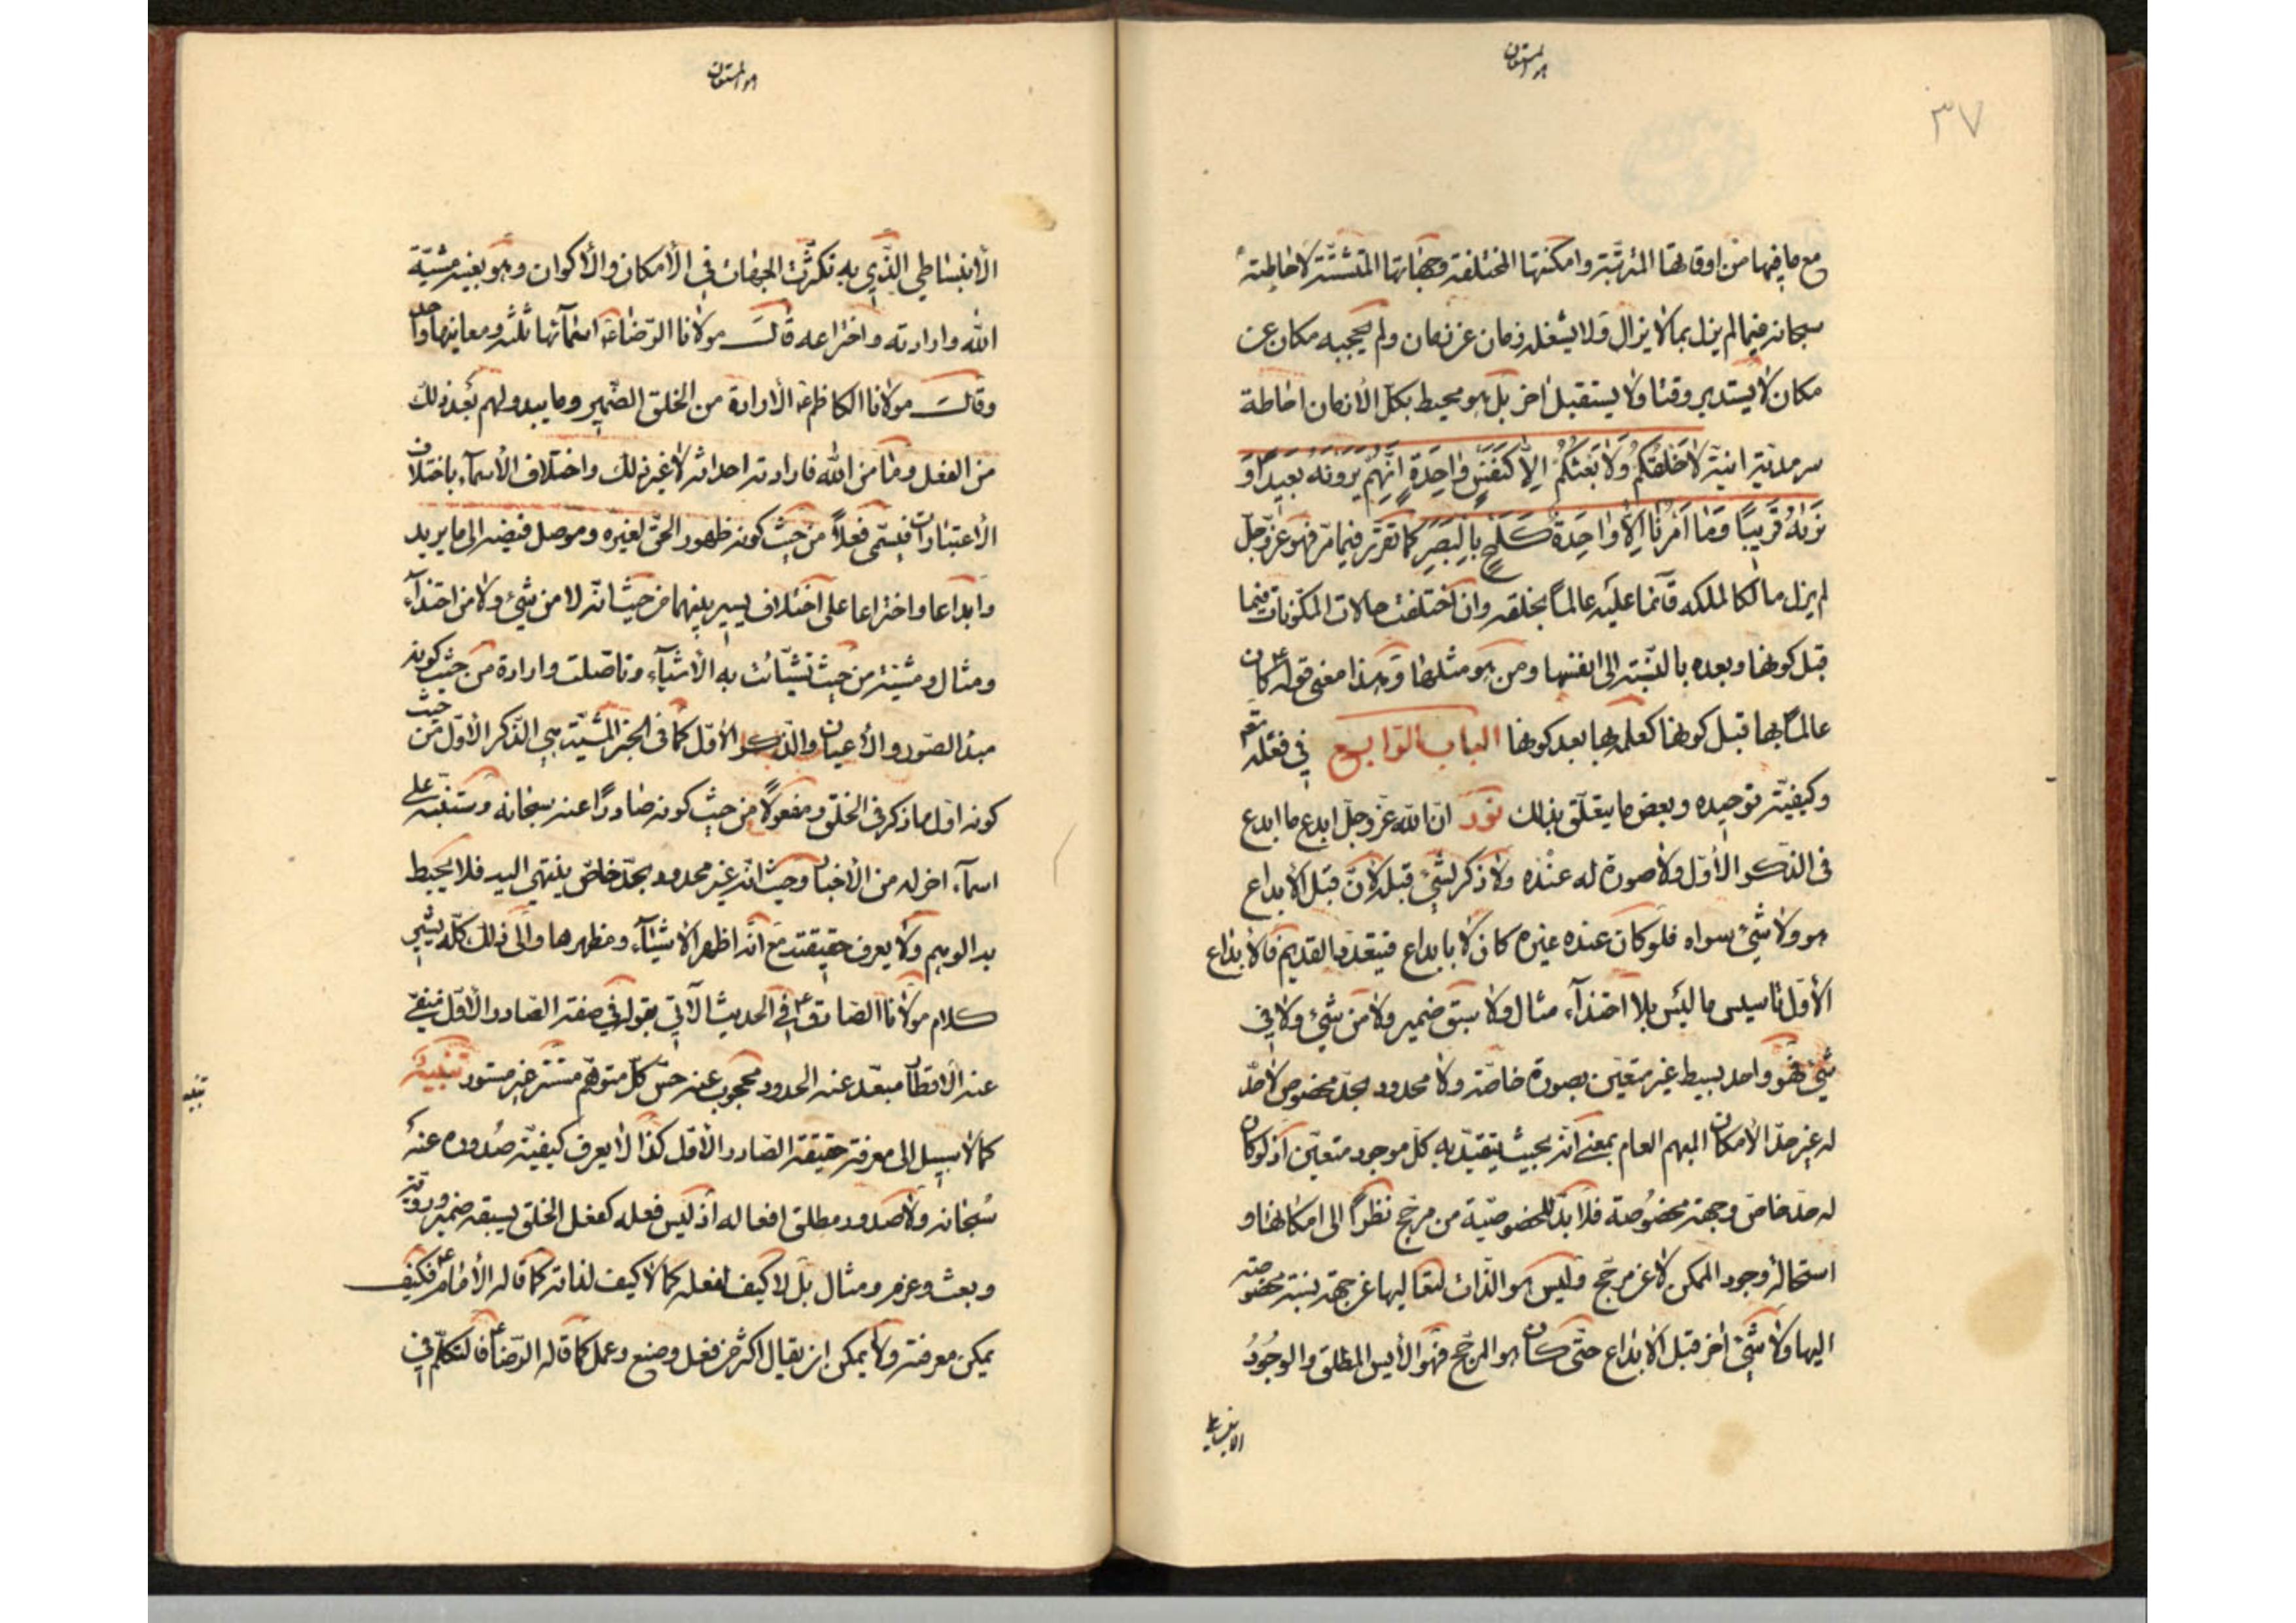 هو المستعان
٣٧
مع ما فيها من اوقاتها المترتبة وامكنتها المختلفة وجهاتها المتشتتة لاحاطته
سبحانه فيما لم يزل بما لا يزال ولا يشغله زمان عن زمان ولم يحجبه مكان عن
مكان لا يستدبر وقتا ولا يستقبل اخر بل هو محيط بكل الأزمان احاطة
سرمدية انية لا خَلقكُم وَلا بَعثكُم اِلاّ كنَفسٍ وٰاحِدَةٍ اِنَّهم يَرَونَهُ بَعيداً وَ
نَرٰهُ قَريبًا وَمٰا اَمرُنا اِلاّ وٰاحِدَةٌ كَلَمحٍ بِالبَصَرِ كما تقرّر فيما مرّ فهو عزّ وجلّ
لم يزل مالكا لملكه قائما عليه عالماً بخلقه وان اختلفت حالات المكوّنات فيما
قبل كونها وبعده بالنّسبة الى انفسها ومن هو مثلها وهذا معنى قوله ع كان
عالماً بها قبل كونها كعلمه بها بعد كونها الباب الرّابع في فعله تعٰ
وكيفيّة توحيده وبعض ما يتعلّق بذلك نور انّ الله عزّ وجلّ ابدع ما ابدع
فى الذكر الأوّل ولا صورة له عنده ولا ذكر لشئ قبله لانّ قبل الابداع
هو ولا شئ سواه فلو كان عنده غيره كان لا بابداع فيتعدّد القديم فالابداع
الأوّل تاسيس ما ليس بلا احتذآء مثال ولا سبق ضمير ولا من شئ ولا في
شئ فهو واحد بسيط غير متعيّن بصورة خاصّة ولا محدود بحدّ مخصوص لا حدّ
له غير حدّ الأمكان المبهم العام بمعنى انّه بحيث يتقيّد به كلّ موجود متعيّن اذ لو كان
له حدّ خاصّ وجهة مخصُوصة فلا بدّ للخصوصيّة من مرجّح نظراً الى امكانها و
استحالة وجود الممكن لا عن مرجّح وليس هو الذّات لتعاليها عن جهة نسبة مخصوصة
اليها ولا شئ اخر قبل الابداع حتّى كان هو المرجّح فهو الأيس المطلق والوجُودُ
الانبساطي
هو المستعان
الأنبساطي الذّي به تكثّرت الجهات في الأمكان والأكوان وهو بعينه مشيّة
الله وارادته واختراعه قالَ مولانا الرّضا ع اسمآئها ثلثة ومعانيها واحد
وقالَ مولانا الكاظم ع الأرادة من الخلق الضّمير وما يبدو لهم بعد ذلك
من الفعل وامّا من الله فارادته احداثه لا غير ذلك واختلاف الأسمآء باختلاف
الأعتبارات فيسمّى فعلاً من حيث كونه ظهور الحقّ لغيره وموصل فيضه الى ما يريد
وابداعا واختراعا على اختلاف يسير بينهما من حيث انّه لا من شئ ولا من احتذآء
ومثال ومشيّة من حيث تشيّأت به الأشيآء وتاصّلت وارادة من حيث كونه
مبدء الصّور والأعيان والذكر الأوّل كما فى الخبر المشيّة هي الذّكر الأوّل من حيث
كونه اوّل ما ذكر فى الخلق ومفعولاً من حيث كونه صادرًا عنه سبحانه وستنبّه على
اسمآء اخر له من الأخبار وحيث انّه غير محدود بحدّ خاصّ ينتهي اليه فلا يحيط
به الوهم ولا يعرف حقيقته مع انّه اظهر الأشيآء ومظهرها والى ذلك كلّه يشير
كلام مولانا الصّادق ع في الحديث الآتي بقوله في صفة الصّادر الأوّل منفيّ
عنه الأقطار مبعّد عنه الحدود محجوب عنه حسّ كلّ متوهّم مستتر غير مستور تنبيهٌ
كما لا سبيل الى معرفة حقيقة الصّادر الأوّل كذا لا يعرف كيفيّة صُدوره عنهُ
سُبحانه ولا صدور مطلق افعاله اذ ليس فعله كفعل الخلق يسبقه ضمير ورويّة
وبعث وعزم ومثال بل لا كيف لفعله كما لا كيف لذاته كما قاله الأمام ع فكيف
يمكن معرفته ولا يمكن ان يقال اكثر من فعل وصنع وعمل كما قاله الرّضا ع فالتكلّم في
تنبيه